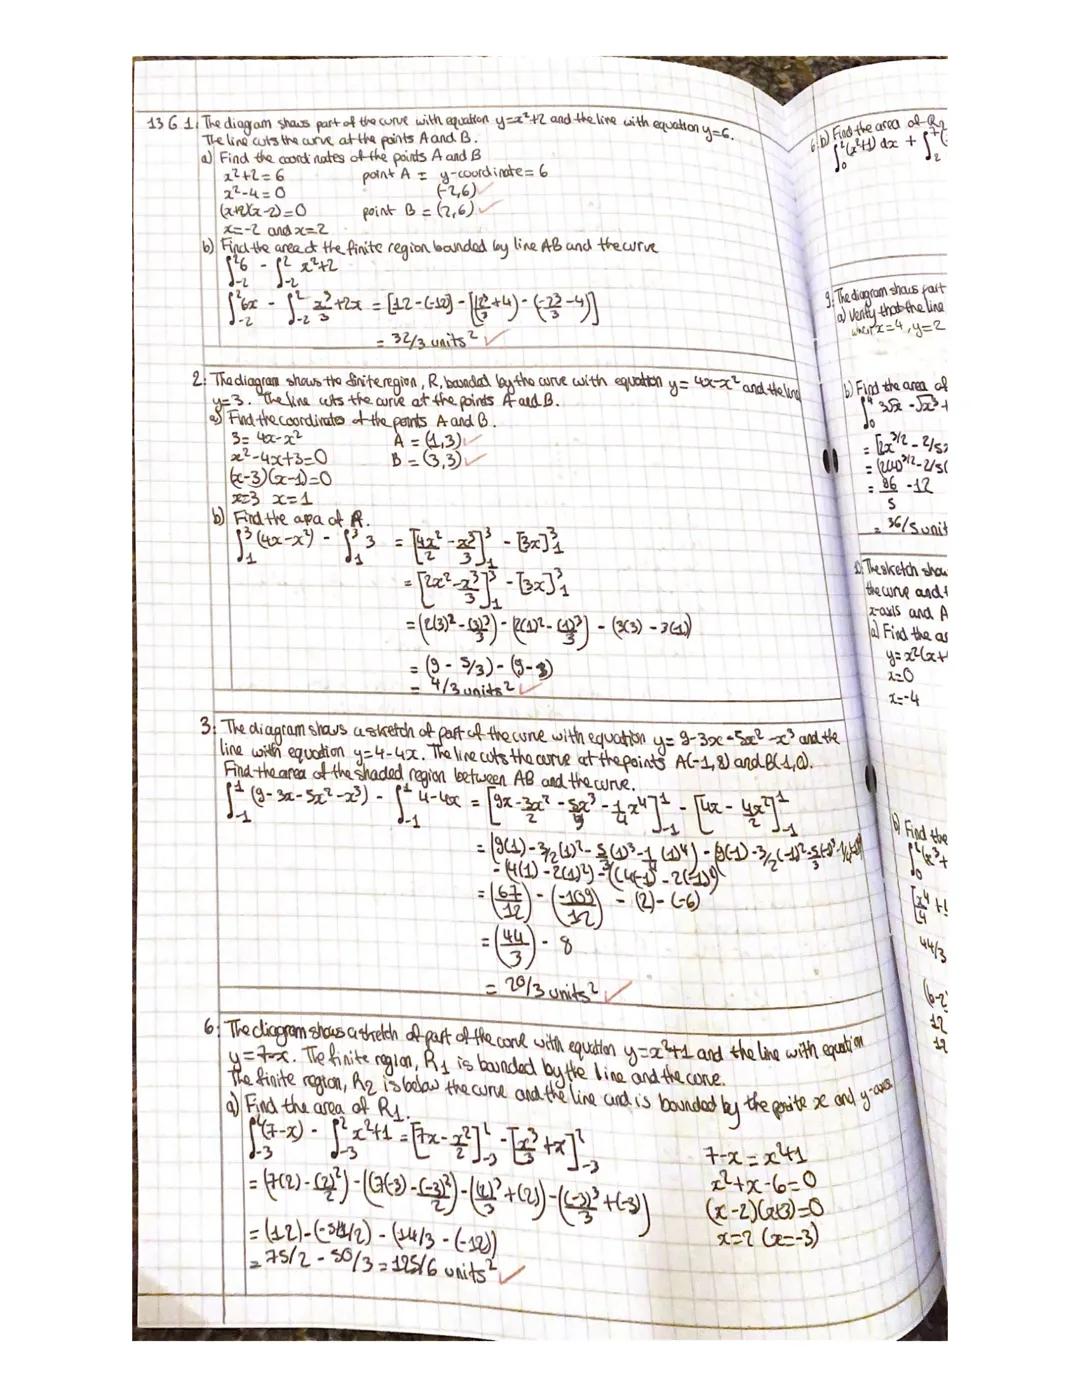 13 G 1. The diagram shows part of the curve with equation y=x²+2 and the line with equation y=6.
The line cuts the curve at the points A and B.
a) Find the coordinates of the points A and B
x²+2=6 point A = y-coordinate = 6
x²-4=0 (-2,6) ✓
(x+2)(x-2)=0 point B = (2,6) ✓
x=-2 and x=2
b) Find the area of the finite region bounded by line AB and the curve
∫²₋₂ 6 - ∫²₋₂ x²+2
∫²₋₂ 6x - ∫²₋₂ x³/3+2x = [12-(-12)] - [(2³/3+4)-(-2³/3-4)]
= 32/3 units² ✓
2. The diagram shows the finite region, R, bounded by the curve with equation y= 4x-x² and the line
y=3. The line cuts the curve at the points A and B.
a) Find the coordinates of the points A and B.
3= 4x-x² A = (1,3) ✓
x²-4x+3=0 B = (3,3) ✓
(x-3)(x-1)=0
x=3 x=1
b) Find the area of R.
∫³₁ (4x-x²) - ∫³₁ 3 = [4x²/2 - x³/3]³₁ - [3x]³₁
= [2x²-x³/3]³₁ - [3x]³₁
= (2(3)²-(3)³/3) - (2(1)²-(1)³/3) - (3(3) - 3(1))
= (9 - 5/3) - (9-3)
= 4/3 units² ✓
3. The diagram shows a sketch of part of the curve with equation y= 9-3x-5x²-x³ and the
line with equation y=4-4x. The line cuts the curve at the points A(-1,8) and B(1,0).
Find the area of the shaded region between AB and the curve.
∫¹₋₁ (9-3x-5x²-x³) - ∫¹₋₁ 4-4x = [9x-3x²/2-5x³/3-1/4 x⁴]¹₋₁ - [4x-4x²/2]¹₋₁
= (9(1)-3/2(1)²-5/3(1)³-1/4(1)⁴) - (9(-1)-3/2(-1)²-5/3(-1)³-1/4(-1)⁴)
- (4(1)-2(1)²) - (4(-1)-2(-1)²)
= (67/12) - (-109/12) - (2)-(-6)
= (44/3) - 8
= 20/3 units² ✓
6. The diagram shows a sketch of part of the curve with equation y=x²+1 and the line with equation
y=7-x. The finite region, R₁ is bounded by the line and the curve.
The finite region, R₂ is below the curve and the line and is bounded by the positive x and y-axes
a) Find the area of R₁.
∫²₋₃ (7-x) - ∫²₋₃ x²+1 = [7x-x²/2]²₋₃ - [x³/3+x]²₋₃ 7-x = x²+1
= (7(2)-(2)²/2) - (7(-3)-(-3)²/2) - ((2)³/3+(2)) - ((-3)³/3+(-3)) x²+x-6=0
(x-2)(x+3)=0
= (12)-(-51/2) - (14/3-(-12)) x=2 (x=-3)
= 75/2 - 50/3 = 125/6 units² ✓
6. b) Find the area of R₂
∫²₀ (x²+1) dx + ∫⁷₂
9. The diagram shows part
a) Verify that the line
when x=4, y=2
b) Find the area of
∫⁴₀ 3√x - √x³ +
= [2x^3/2 - 2/5x
= (2(4)^3/2 - 2/5(
= 96/5 - 12
= 36/5 unit
The sketch show
the curve and
x-axis and A
a) Find the
y=x²(x+
x=0
x=-4
b) Find the
44/3
12
12